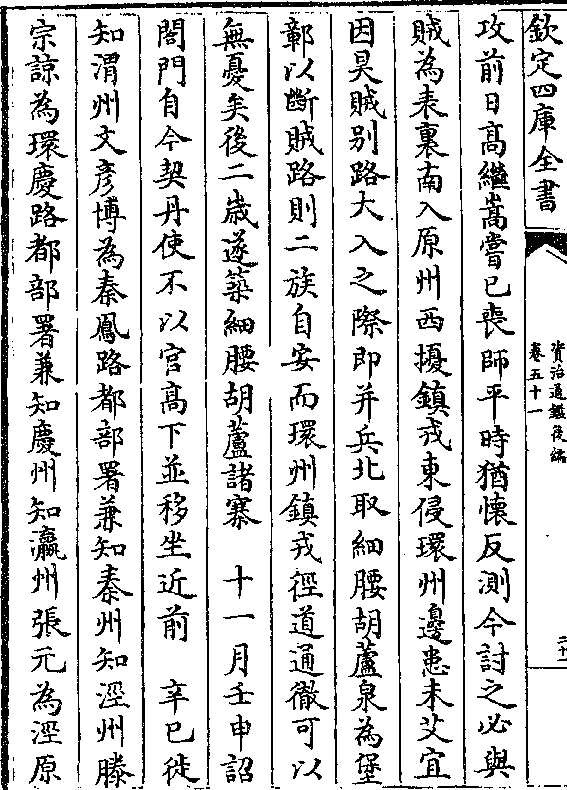 欽定四庫全書
資治通鑑後編
卷五十一
二十二
攻前日高繼嵩嘗已喪師平時猶懷反測今討之必與
賊為表裏南入原州西擾鎮戎東侵環州邊患未艾宜
因昊賊别路大入之際即并兵北取細腰胡蘆泉為堡
鄣以斷賊路則二族自安而環州鎮戎徑道通徹可以
無憂矣後二歲遂築細腰胡蘆諸寨　十一月壬申詔
閤門自今契丹使不以官高下並移坐近前　辛巳徙
知渭州文彥博為秦鳳路都部署兼知秦州知涇州滕
宗諒為環慶路都部署兼知慶州知瀛州張亢為涇原